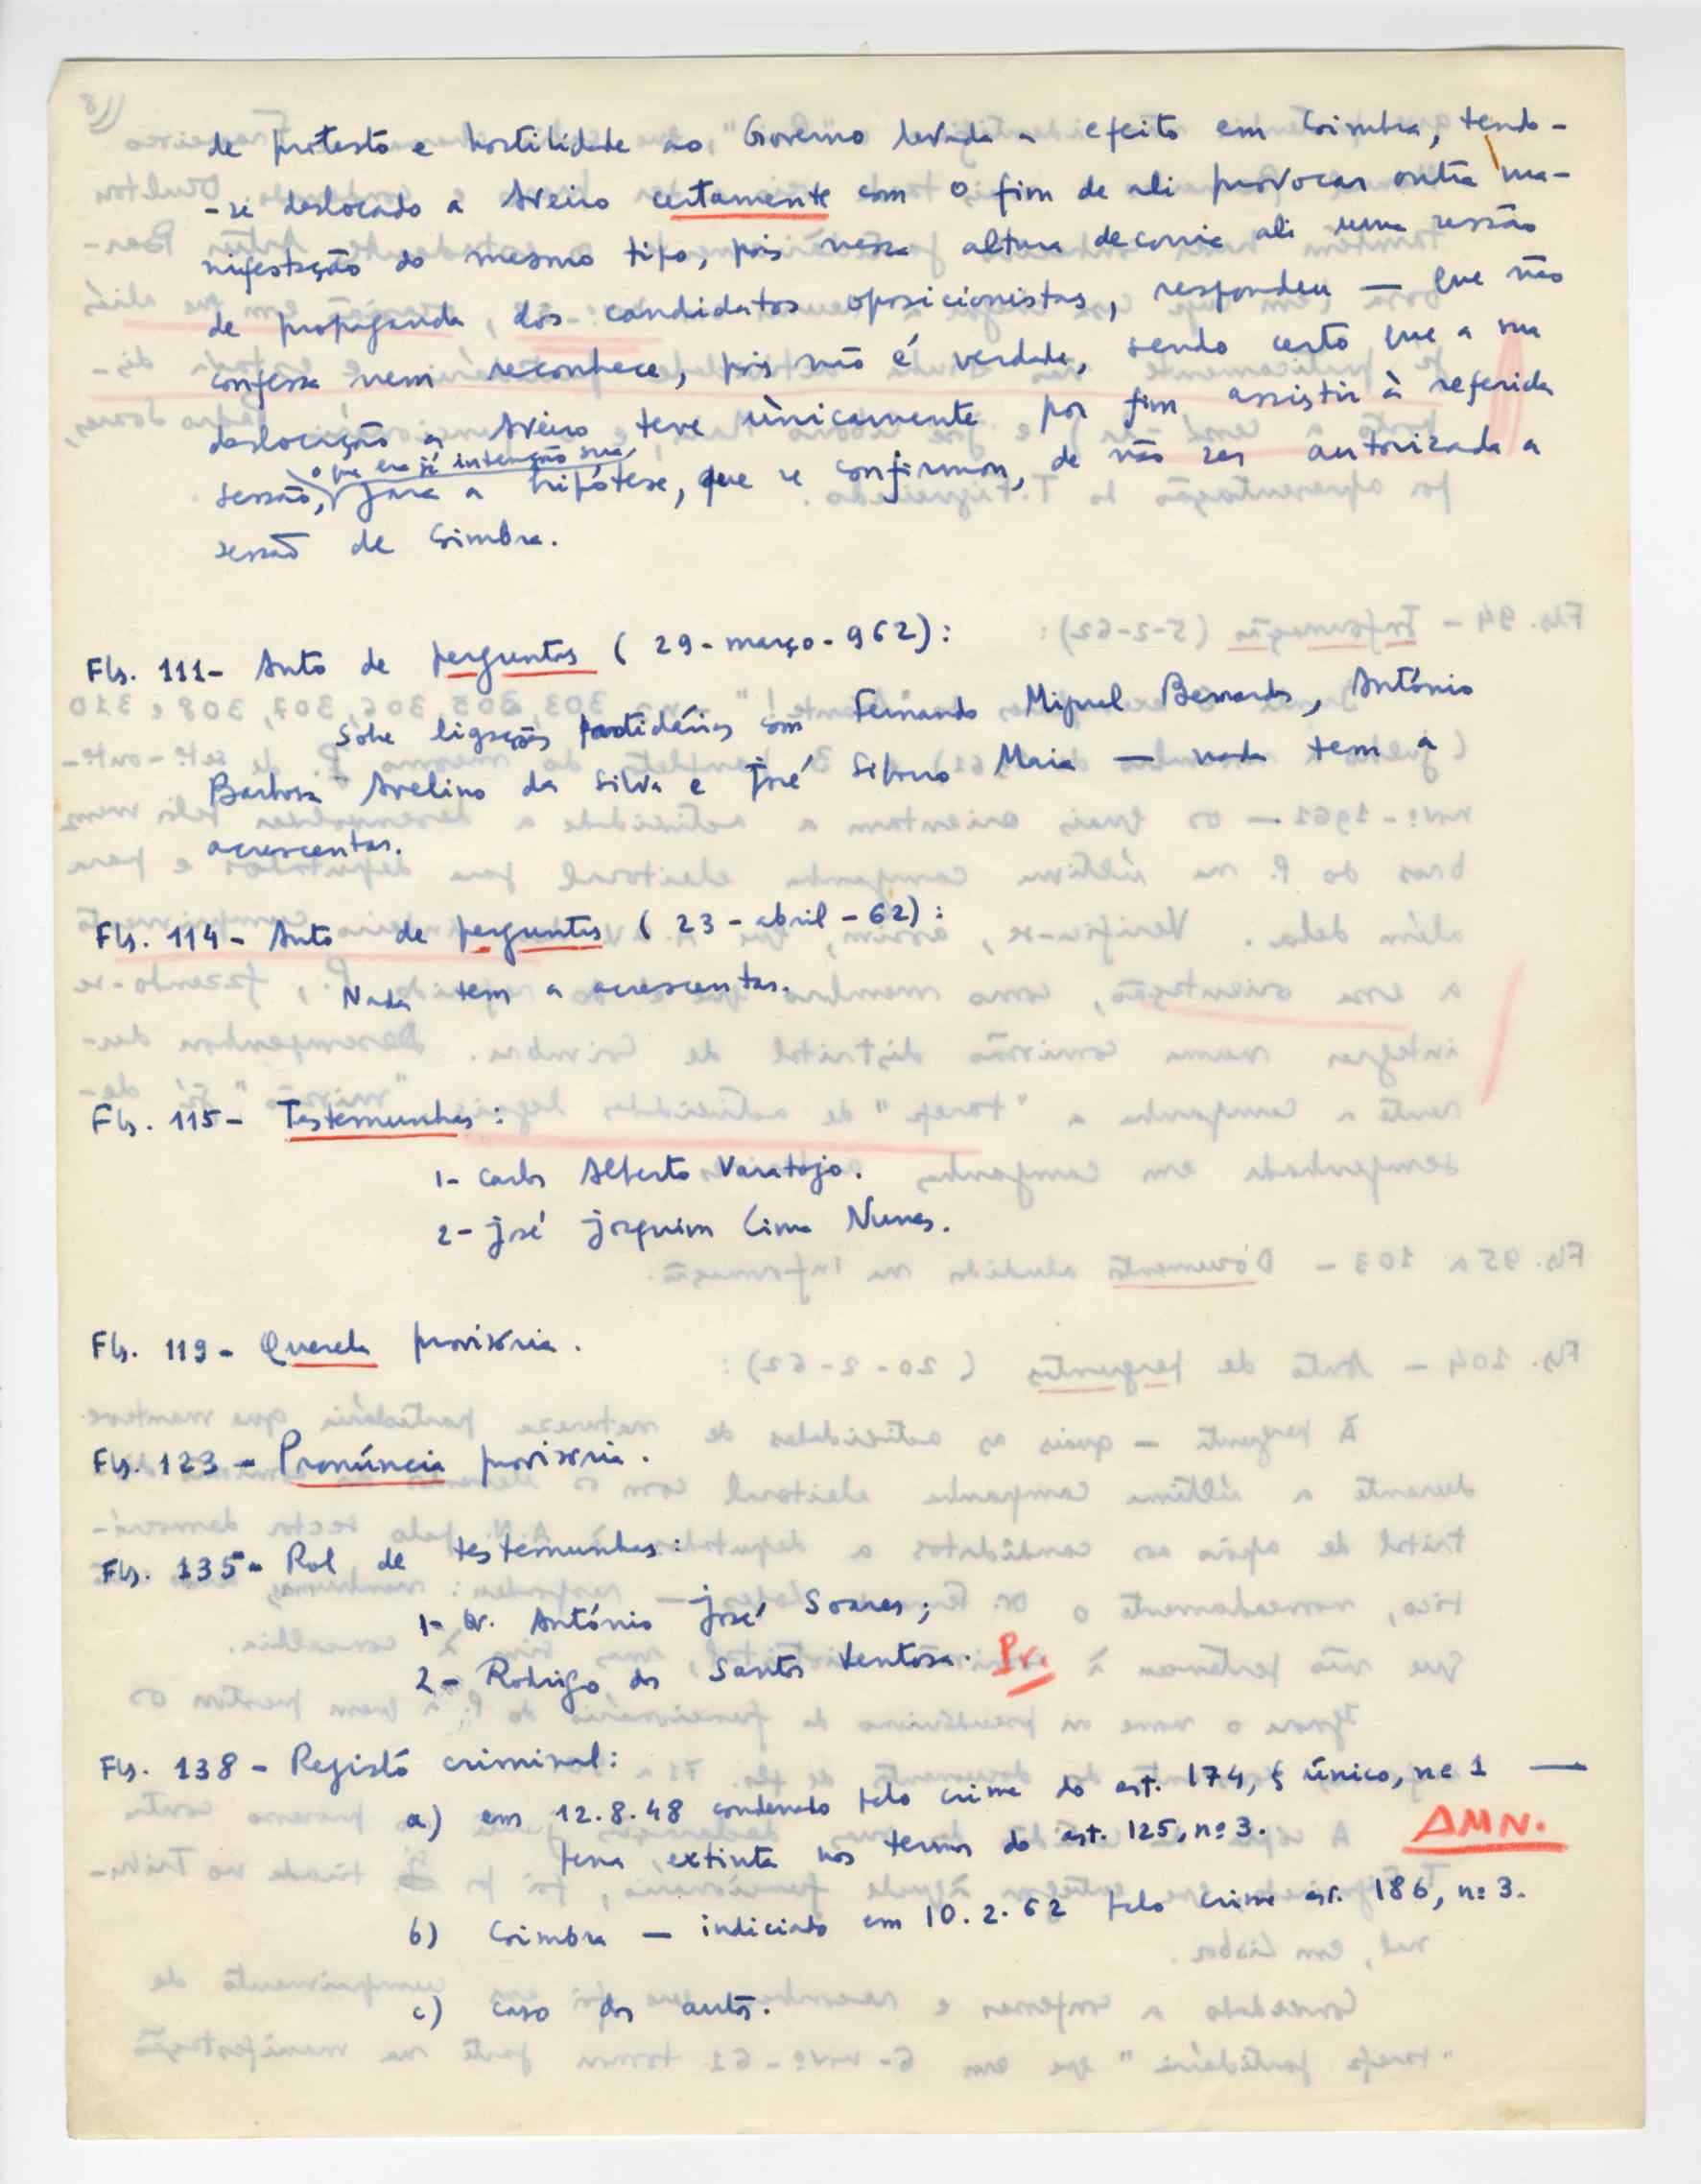 de protesto e hostilidade ao Governo levada a efeito em Coimbra, tendo-
-se deslocado a Aveiro certamente com o fim de ali provocar outra ma-
nifestação do mesmo tipo, pois nessa altura decorria ali uma sessão
de propaganda dos candidatos oposicionistas, respondeu — que não
confessa nem reconhece, pois não é verdade, sendo certo que a sua
deslocação a Aveiro teve ùnicamente por fim assistir à referida
o que era já intenção sua,
sessão, para a hipótese, que se confirmou, de não ser autorizada a
sessão de Coimbra.
Fls. 111- Auto de perguntas (29-março-962):
Sobre ligações partidárias com Fernando Miguel Bernardes, António
Barbosa Avelino da Silva e José Silvino Maia — nada tem a
acrescentar.
Fls. 114- Auto de perguntas (23-abril-62):
Nada tem a acrescentar.
Fls. 115- Testemunhas:
1- Carlos Alberto Varatojo.
2- José Joaquim Lima Nunes.
Fls. 119- Querela provisória.
Fls. 123- Pronúncia provisória.
Fls. 135- Rol de testemunhas:
1- Dr. António José Soares;
2- Rodrigo dos Santos Ventosa. Pr.
Fls. 138- Registo criminal:
a) em 12.8.48 condenado pelo crime do art. 174, § único, nº 1 —
pena extinta nos termos do art. 125, nº 3. AMN.
b) Coimbra — indiciado em 10.2.62 pelo crime art. 186, nº 3.
c) caso dos autos.